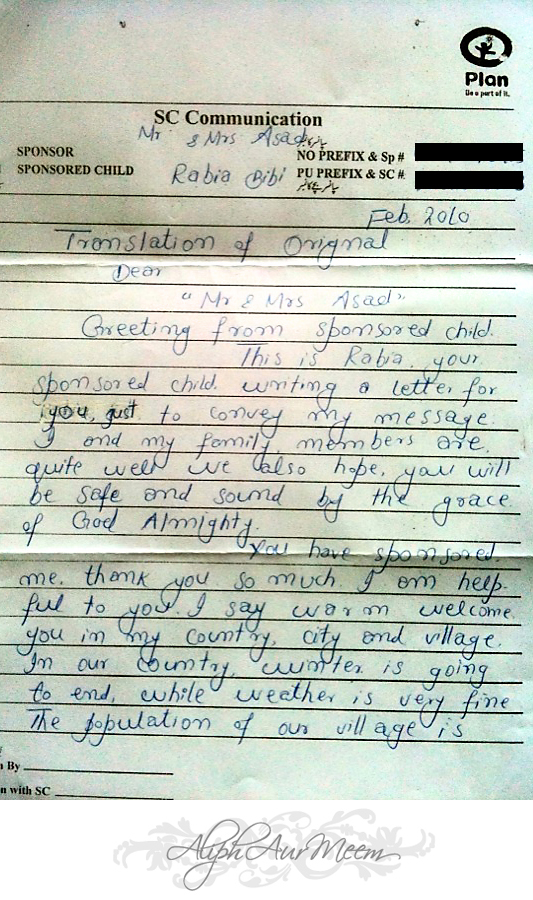 Plan
Be a part of it.
SC Communication
Mr & Mrs Asad
SPONSOR
NO PREFIX & Sp #
SPONSORED CHILD
Rabia Bibi
PU PREFIX & SC #
Feb. 2010
Translation of Orignal
Dear
"Mr & Mrs Asad"
Greeting from sponsored child.
This is Rabia, your
sponsored child. writing a letter for
you, just to convey my message.
I and my family, members are,
quite well we also hope, you will
be safe and sound by the grace
of God Almighty.
You have sponsored
me. thank you so much. I am help-
ful to you. I say warm welcome
you in my country, city and village.
In our country, winter is going
to end, while weather is very fine
The population of our village is
n By
n with SC
Aliph Aur Meem